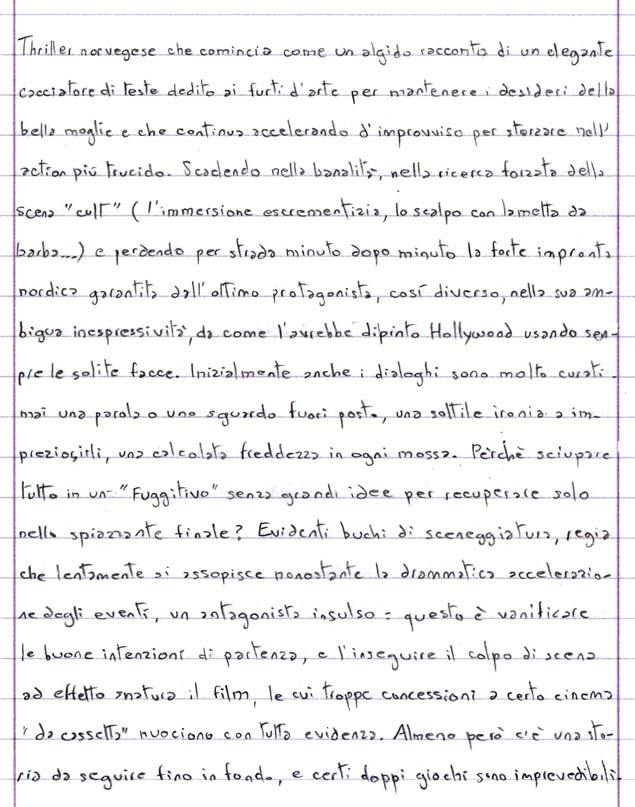 Thriller norvegese che comincia come un algido racconto di un elegante
cacciatore di teste dedito ai furti d'arte per mantenere i desideri della
bella moglie e che continua accelerando d'improvviso per sterzare nell'
action più trucido. Scadendo nella banalità, nella ricerca forzata della
scena "cult" (l'immersione escrementizia, lo scalpo con lametta da
barba...) e perdendo per strada minuto dopo minuto la forte impronta
nordica garantita dall'ottimo protagonista, così diverso, nella sua am-
bigua inespressività, da come l'avrebbe dipinto Hollywood usando sem-
pre le solite facce. Inizialmente anche i dialoghi sono molto curati
mai una parola o uno sguardo fuori posto, una sottile ironia a im-
preziosirli, una calcolata freddezza in ogni mossa. Perchè sciupare
tutto in un "Fuggitivo" senza grandi idee per recuperare solo
nello spiazzante finale? Evidenti buchi di sceneggiatura, regia
che lentamente si assopisce nonostante la drammatica accelerazio-
ne degli eventi, un antagonista insulso: questo è vanificare
le buone intenzioni di partenza, e l'inseguire il colpo di scena
ad effetto snatura il film, le cui troppe concessioni a certo cinema
"da cassetta" nuociono con tutta evidenza. Almeno però c'è una sto-
ria da seguire fino in fondo, e certi doppi giochi sono imprevedibili.